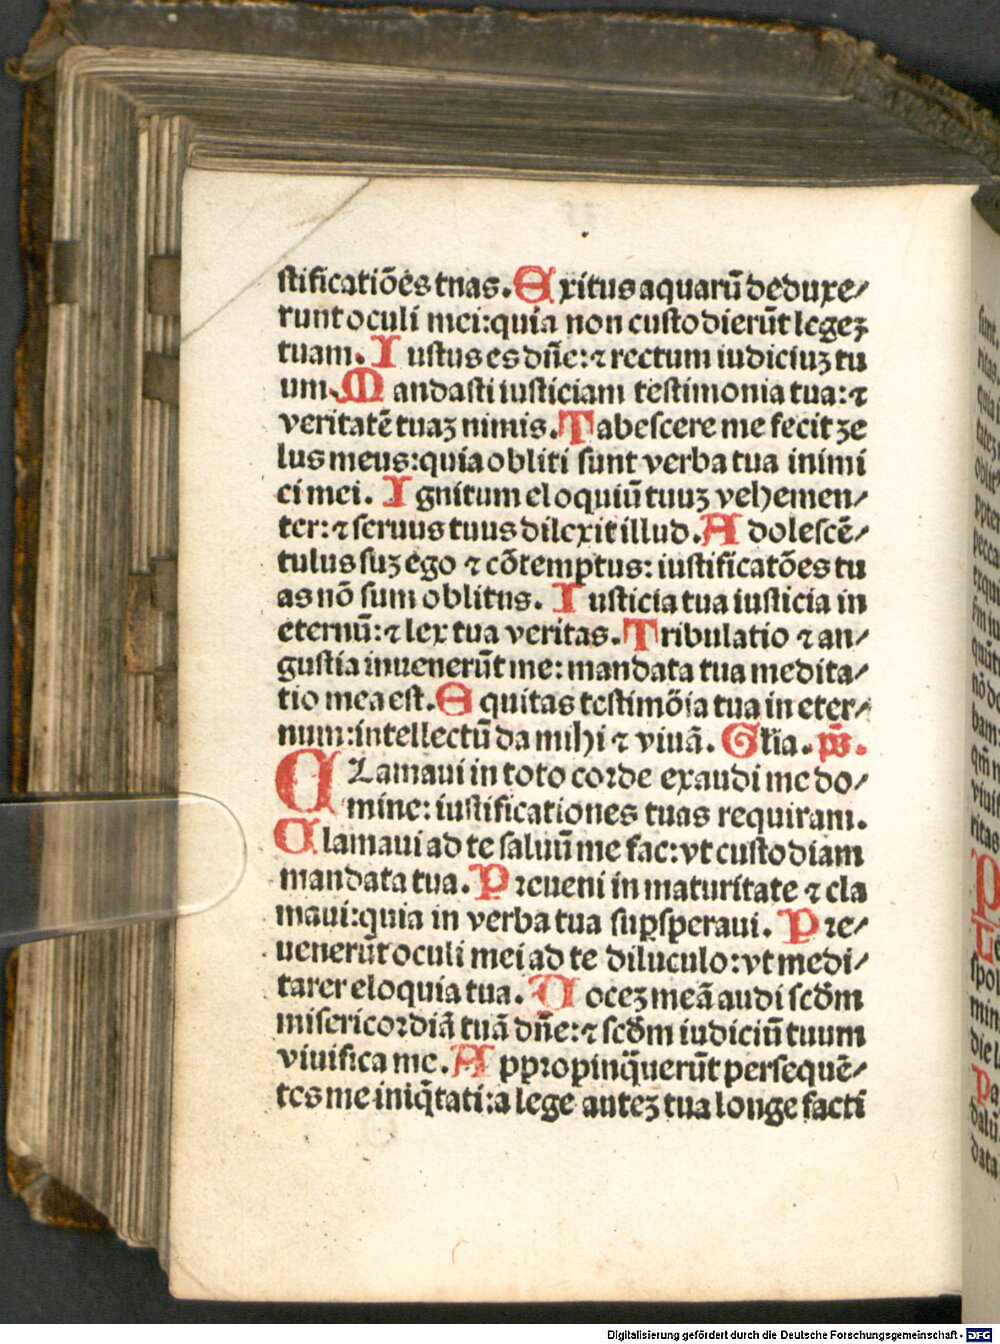 stificatiões tuas. Exitus aquarū deduxe/
runt oculi mei: quia non custodierūt legeꝫ
tuam. Iustus es dn̄e: ⁊ rectum iudiciuꝫ tu
um. Mandasti iusticiam testimonia tua: ⁊
veritatē tuaꝫ nimis. Tabescere me fecit ze
lus meus: quia obliti sunt verba tua inimi
ci mei. Ignitum eloquiū tuuꝫ vehemen/
ter: ⁊ seruus tuus dilexit illud. Adolescē/
tulus suꝫ ego ⁊ cōtemptus: iustificatōes tu
as nō sum oblitus. Iusticia tua iusticia in
eternū: ⁊ lex tua veritas. Tribulatio ⁊ an/
gustia inuenerūt me: mandata tua medita/
tio mea est. Equitas testimōia tua in eter/
num: intellectū da mihi ⁊ viuā. Gl̄ia. ps̄.
Clamaui in toto corde exaudi me do/
mine: iustificationes tuas requiram.
Clamaui ad te saluū me fac: vt custodiam
mandata tua. Preueni in maturitate ⁊ cla
maui: quia in verba tua suꝑsperaui. Pre/
uenerūt oculi mei ad te diluculo: vt medi/
tarer eloquia tua. Uoceꝫ meā audi scd̄m
misericordiā tuā dn̄e: ⁊ scd̄m iudiciū tuum
viuifica me. Appropinq̄uerūt persequē/
tes me iniq̄tati: a lege auteꝫ tua longe facti
Digitalisierung gefördert durch die Deutsche Forschungsgemeinschaft - DFG